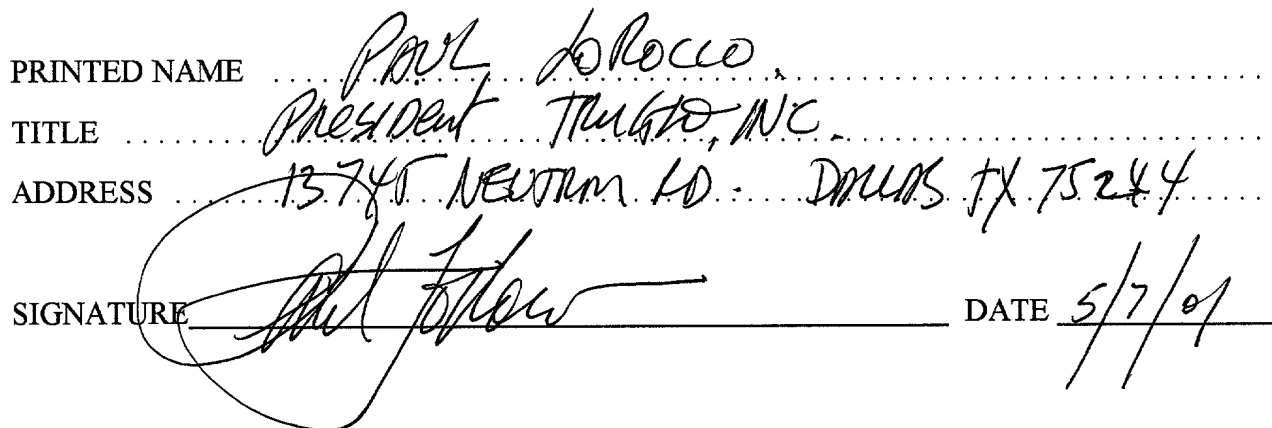 PRINTED NAME PAUL LOROCCO
TITLE PRESIDENT TRUGLO, INC.
ADDRESS 13745 NEUTRON RD. DALLAS TX 75244
SIGNATURE Paul LoRocco DATE 5/7/01